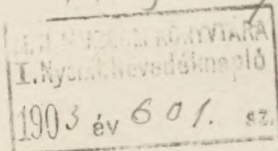 M. N. MUZEUM KÖNYVTÁRA
I. Nyomt. Növedéknapló
1903 év 601. sz.